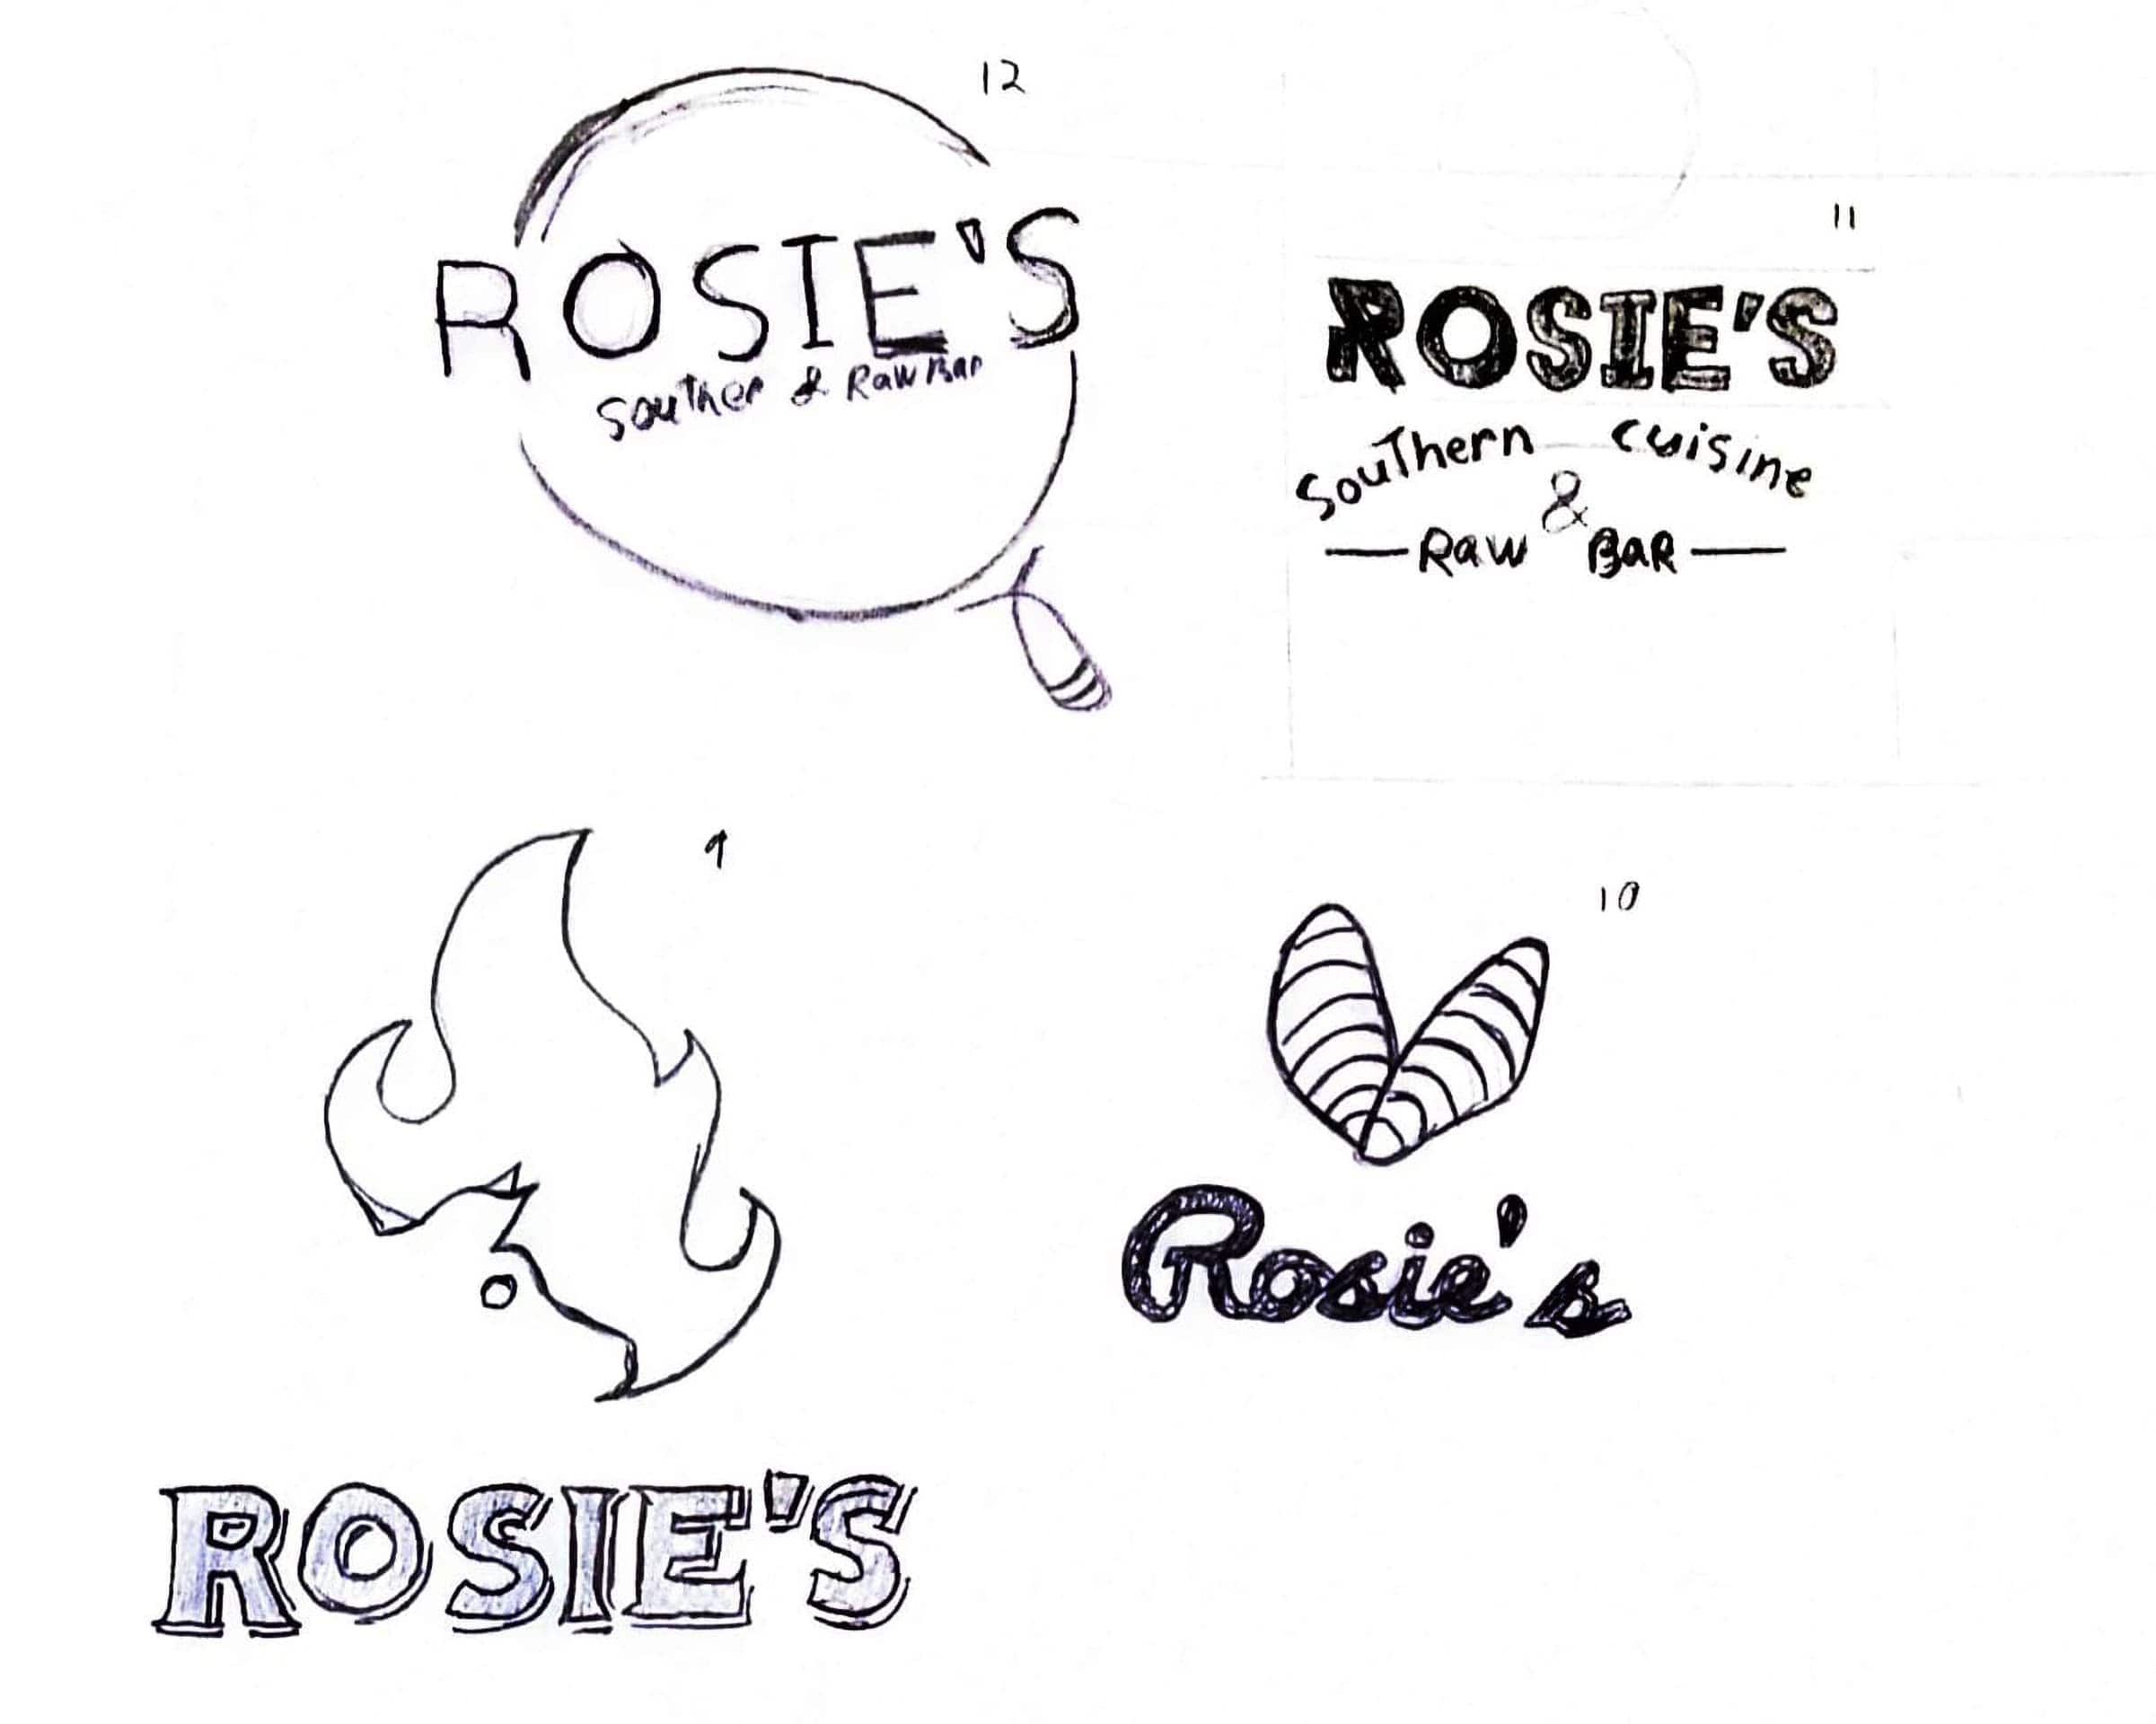 12
ROSIE'S
Souther & Raw Bar
11
ROSIE'S
Southern cuisine
&
Raw Bar
9
ROSIE'S
10
Rosie's